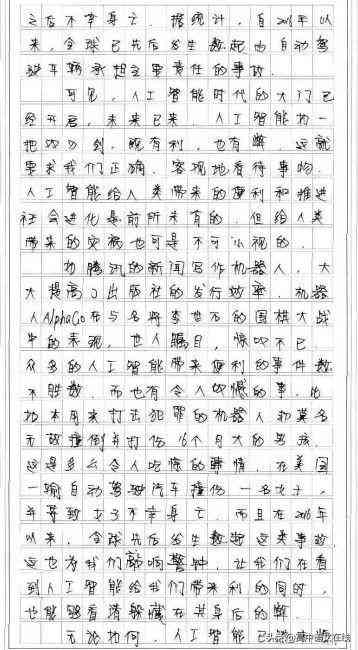 之后不幸身亡。据统计，自2016年以
来，全球已先后发生数起由自动驾
驶车辆承担主要责任的事故。
可见，人工智能时代的大门已
经开启，未来已来。人工智能如一
把 ，既有利，也有弊，这就
要求我们正确、客观地看待事物。
人工智能给人类带来的便利和推进
社会进化是前所未有的，但给人类
带来的灾祸也可是不可小视的。
如腾讯的新闻写作机器人，大
大提高了出版社的发行效率，机器
人AlphaGo在与名将李世石的围棋大战
中的表现，世人瞩目，惊叹不已
众多的人工智能带来便利的事件数
不胜数。而也有令人惊憾的事，比
如本用来打击犯罪的机器人却莫名
无故撞倒并打伤16个月大的男孩。
这是多么令人吃惊的事情，在美国
一辆自动驾驶汽车撞伤一名女子，
并导致女子不幸身亡，而且在2016年
以来，全球先后发生数起这类事故
这也为我们敲响警钟，让我们在看
到人工智能给我们带来利的同时，
也能够看清躲藏在其身后的弊。
无论如何，人工智能已
头条@高中语文在线